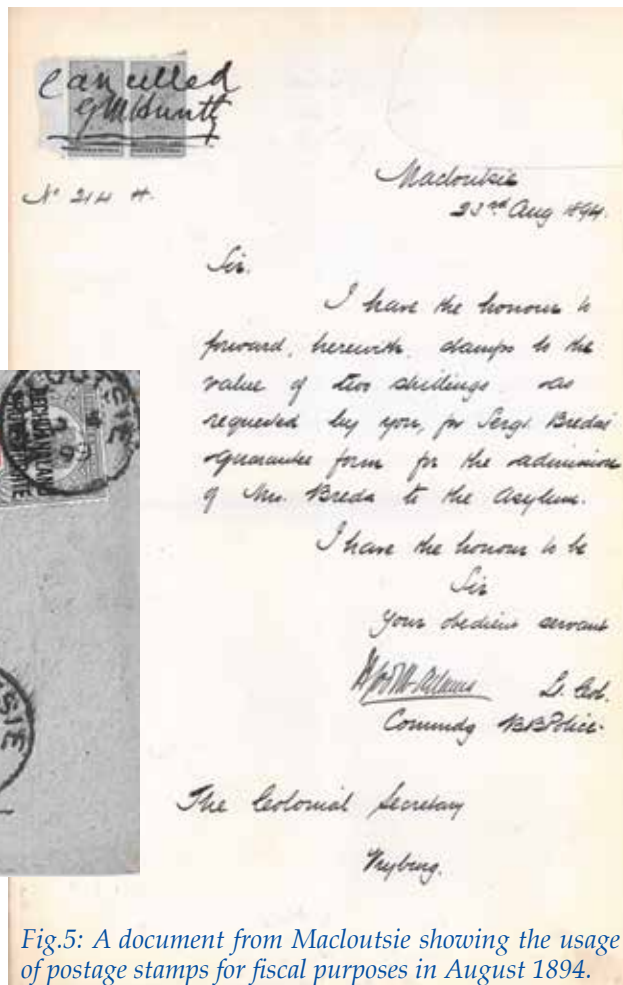 Cancelled
No 214 H.
Macloutsie
23rd Aug 1894.
Sir.
I have the honour to
forward, herewith, stamps to the
value of two shillings as
requested by you, for Sergt. Bredas'
guarantee form for the admission
of Mrs. Breda to the Asylum.
I have the honour to be
Sir
Your obedient servant
Lt. Col.
Commdg BBPolice.
The Colonial Secretary
Vryburg.
BECHUANALAND
SIE
Fig.5: A document from Macloutsie showing the usage
of postage stamps for fiscal purposes in August 1894.